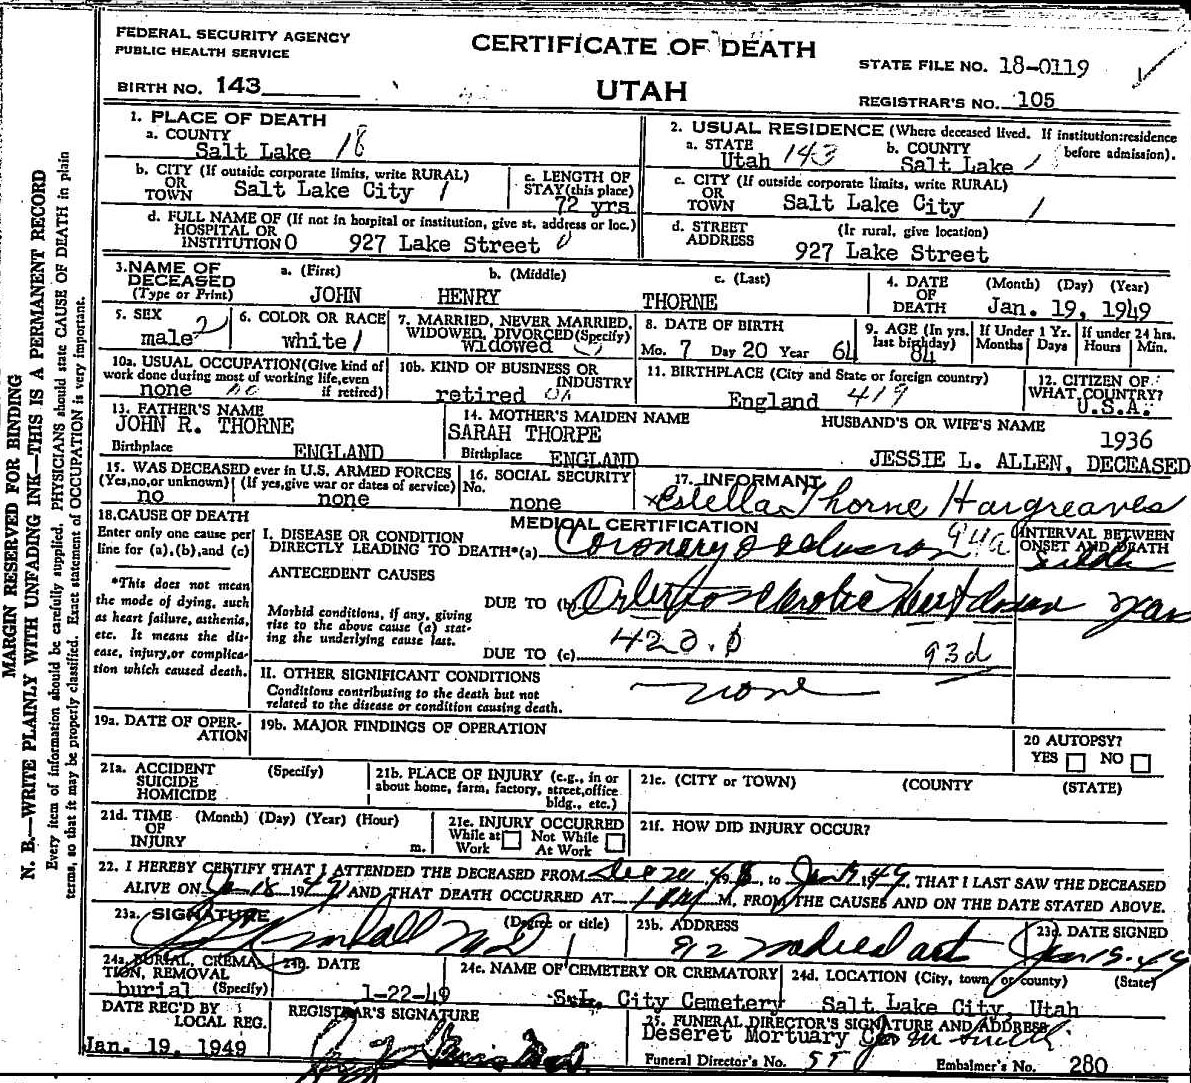 FEDERAL SECURITY AGENCY
PUBLIC HEALTH SERVICE
CERTIFICATE OF DEATH
UTAH
STATE FILE NO. 18-0119
BIRTH NO. 143
REGISTRAR'S NO. 105
MARGIN RESERVED FOR BINDING
N. B.—WRITE PLAINLY WITH UNFADING INK—THIS IS A PERMANENT RECORD
Every item of information should be carefully supplied. PHYSICIANS should state CAUSE OF DEATH in plain
terms, so that it may be properly classified. Exact statement of OCCUPATION is very important.
1. PLACE OF DEATH
a. COUNTY
Salt Lake 18
b. CITY (If outside corporate limits, write RURAL)
OR
TOWN Salt Lake City 1
c. LENGTH OF
STAY (this place)
72 yrs
d. FULL NAME OF (If not in hospital or institution, give st. address or loc.)
HOSPITAL OR
INSTITUTION 0 927 Lake Street 0
2. USUAL RESIDENCE (Where deceased lived. If institution:residence
before admission).
a. STATE
Utah 143
b. COUNTY
Salt Lake 1
c. CITY (If outside corporate limits, write RURAL)
OR
TOWN Salt Lake City 1
d. STREET
ADDRESS
(If rural, give location)
927 Lake Street
3. NAME OF
DECEASED
(Type or Print)
a. (First)
JOHN
b. (Middle)
HENRY
c. (Last)
THORNE
4. DATE
OF
DEATH
(Month) (Day) (Year)
Jan. 19, 1949
5. SEX
male 2
6. COLOR OR RACE
white 1
7. MARRIED, NEVER MARRIED,
WIDOWED, DIVORCED (Specify)
widowed
8. DATE OF BIRTH
Mo. 7 Day 20 Year 64
9. AGE (In yrs.
last birthday)
84
If Under 1 Yr.
Months Days
If under 24 hrs.
Hours Min.
10a. USUAL OCCUPATION (Give kind of
work done during most of working life, even
if retired)
none
10b. KIND OF BUSINESS OR
INDUSTRY
retired
11. BIRTHPLACE (City and State or foreign country)
England 419
12. CITIZEN OF
WHAT COUNTRY?
U.S.A.
13. FATHER'S NAME
JOHN R. THORNE
Birthplace ENGLAND
14. MOTHER'S MAIDEN NAME
SARAH THORPE
Birthplace ENGLAND
HUSBAND'S OR WIFE'S NAME
1936
JESSIE L. ALLEN, DECEASED
15. WAS DECEASED ever in U.S. ARMED FORCES
(Yes,no,or unknown) (If yes, give war or dates of service)
no none
16. SOCIAL SECURITY
No.
none
17. INFORMANT
x Estella Thorne Hargreaves
18. CAUSE OF DEATH
Enter only one cause per
line for (a), (b), and (c)
*This does not mean
the mode of dying, such
as heart failure, asthenia,
etc. It means the dis-
ease, injury, or complica-
tion which caused death.
MEDICAL CERTIFICATION
I. DISEASE OR CONDITION
DIRECTLY LEADING TO DEATH*(a) Coronary Occlusion 94a
INTERVAL BETWEEN
ONSET AND DEATH
ANTECEDENT CAUSES
Morbid conditions, if any, giving
rise to the above cause (a) stat-
ing the underlying cause last.
DUE TO (b) Arteriosclerotic Heart disease years
420.1
DUE TO (c) 93d
II. OTHER SIGNIFICANT CONDITIONS
Conditions contributing to the death but not
related to the disease or condition causing death.
none
19a. DATE OF OPER-
ATION
19b. MAJOR FINDINGS OF OPERATION
20 AUTOPSY?
YES NO
21a. ACCIDENT
SUICIDE
HOMICIDE
(Specify)
21b. PLACE OF INJURY (e.g., in or
about home, farm, factory, street, office
bldg., etc.)
21c. (CITY or TOWN) (COUNTY) (STATE)
21d. TIME
OF
INJURY
(Month) (Day) (Year) (Hour)
m.
21e. INJURY OCCURRED
While at Work Not While At Work
21f. HOW DID INJURY OCCUR?
22. I HEREBY CERTIFY THAT I ATTENDED THE DECEASED FROM Dec 20, 1948, to Jan 19 1949, THAT I LAST SAW THE DECEASED
ALIVE ON Jan 18, 1949, AND THAT DEATH OCCURRED AT M, FROM THE CAUSES AND ON THE DATE STATED ABOVE.
23a. SIGNATURE
(Degree or title)
Kimball MD
23b. ADDRESS
912 Medical arts
23d. DATE SIGNED
Jan 19-49
24a. BURIAL, CREMA-
TION, REMOVAL
(Specify)
burial
24b. DATE
1-22-49
24c. NAME OF CEMETERY OR CREMATORY
S.L. City Cemetery
24d. LOCATION (City, town or county) (State)
Salt Lake City, Utah
DATE REC'D BY
LOCAL REG.
Jan. 19, 1949
REGISTRAR'S SIGNATURE
25. FUNERAL DIRECTOR'S SIGNATURE AND ADDRESS
Deseret Mortuary Geo M Smith
Funeral Director's No. Embalmer's No. 280